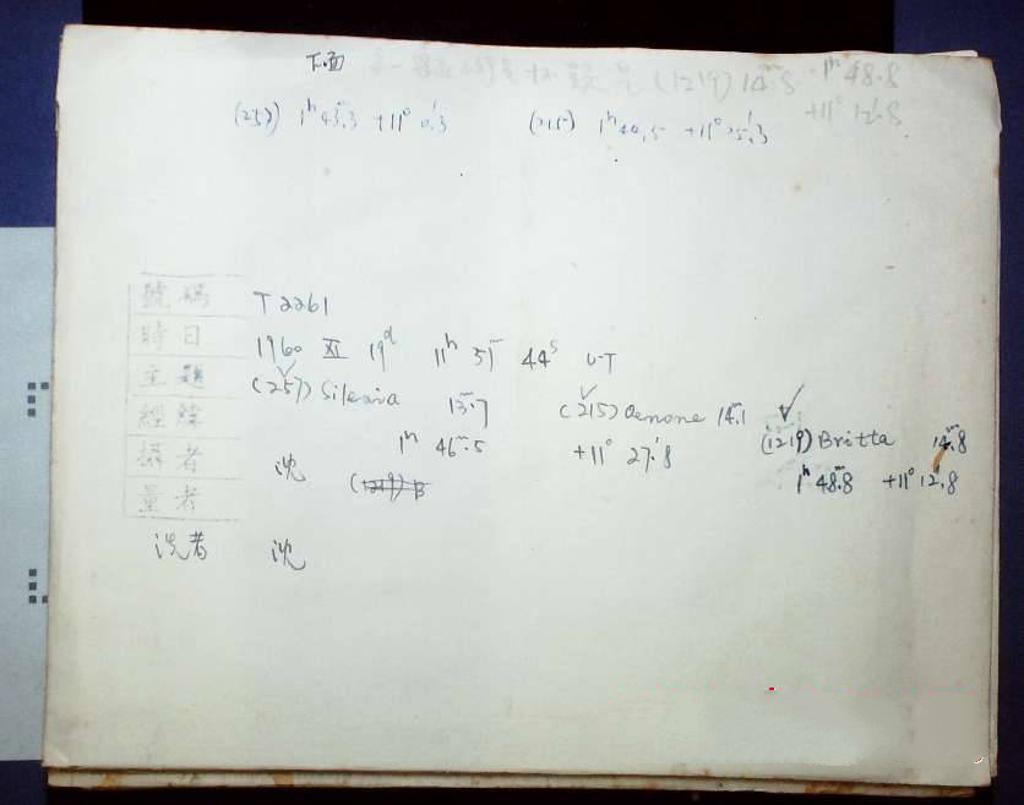 下面 (1219) 14.ᵐ8 1ʰ 48.ᵐ8
+11° 12.′8
(257) 1ʰ 43.ᵐ3 +11° 0.′3 (215) 1ʰ 44.5 +11° 25.′3
號碼 T 2261
時日 1960 XI 19ᵈ 11ʰ 51ᵐ 44ˢ UT
主題 (257) Silesia 13.ᵐ7 (215) Oenone 14.ᵐ1 (1219) Britta 14.ᵐ8
經緯 1ʰ 46.ᵐ5 +11° 27.′8 1ʰ 48.ᵐ8 +11° 12.′8
攝者 沈 (1219) B
量者
洗者 沈